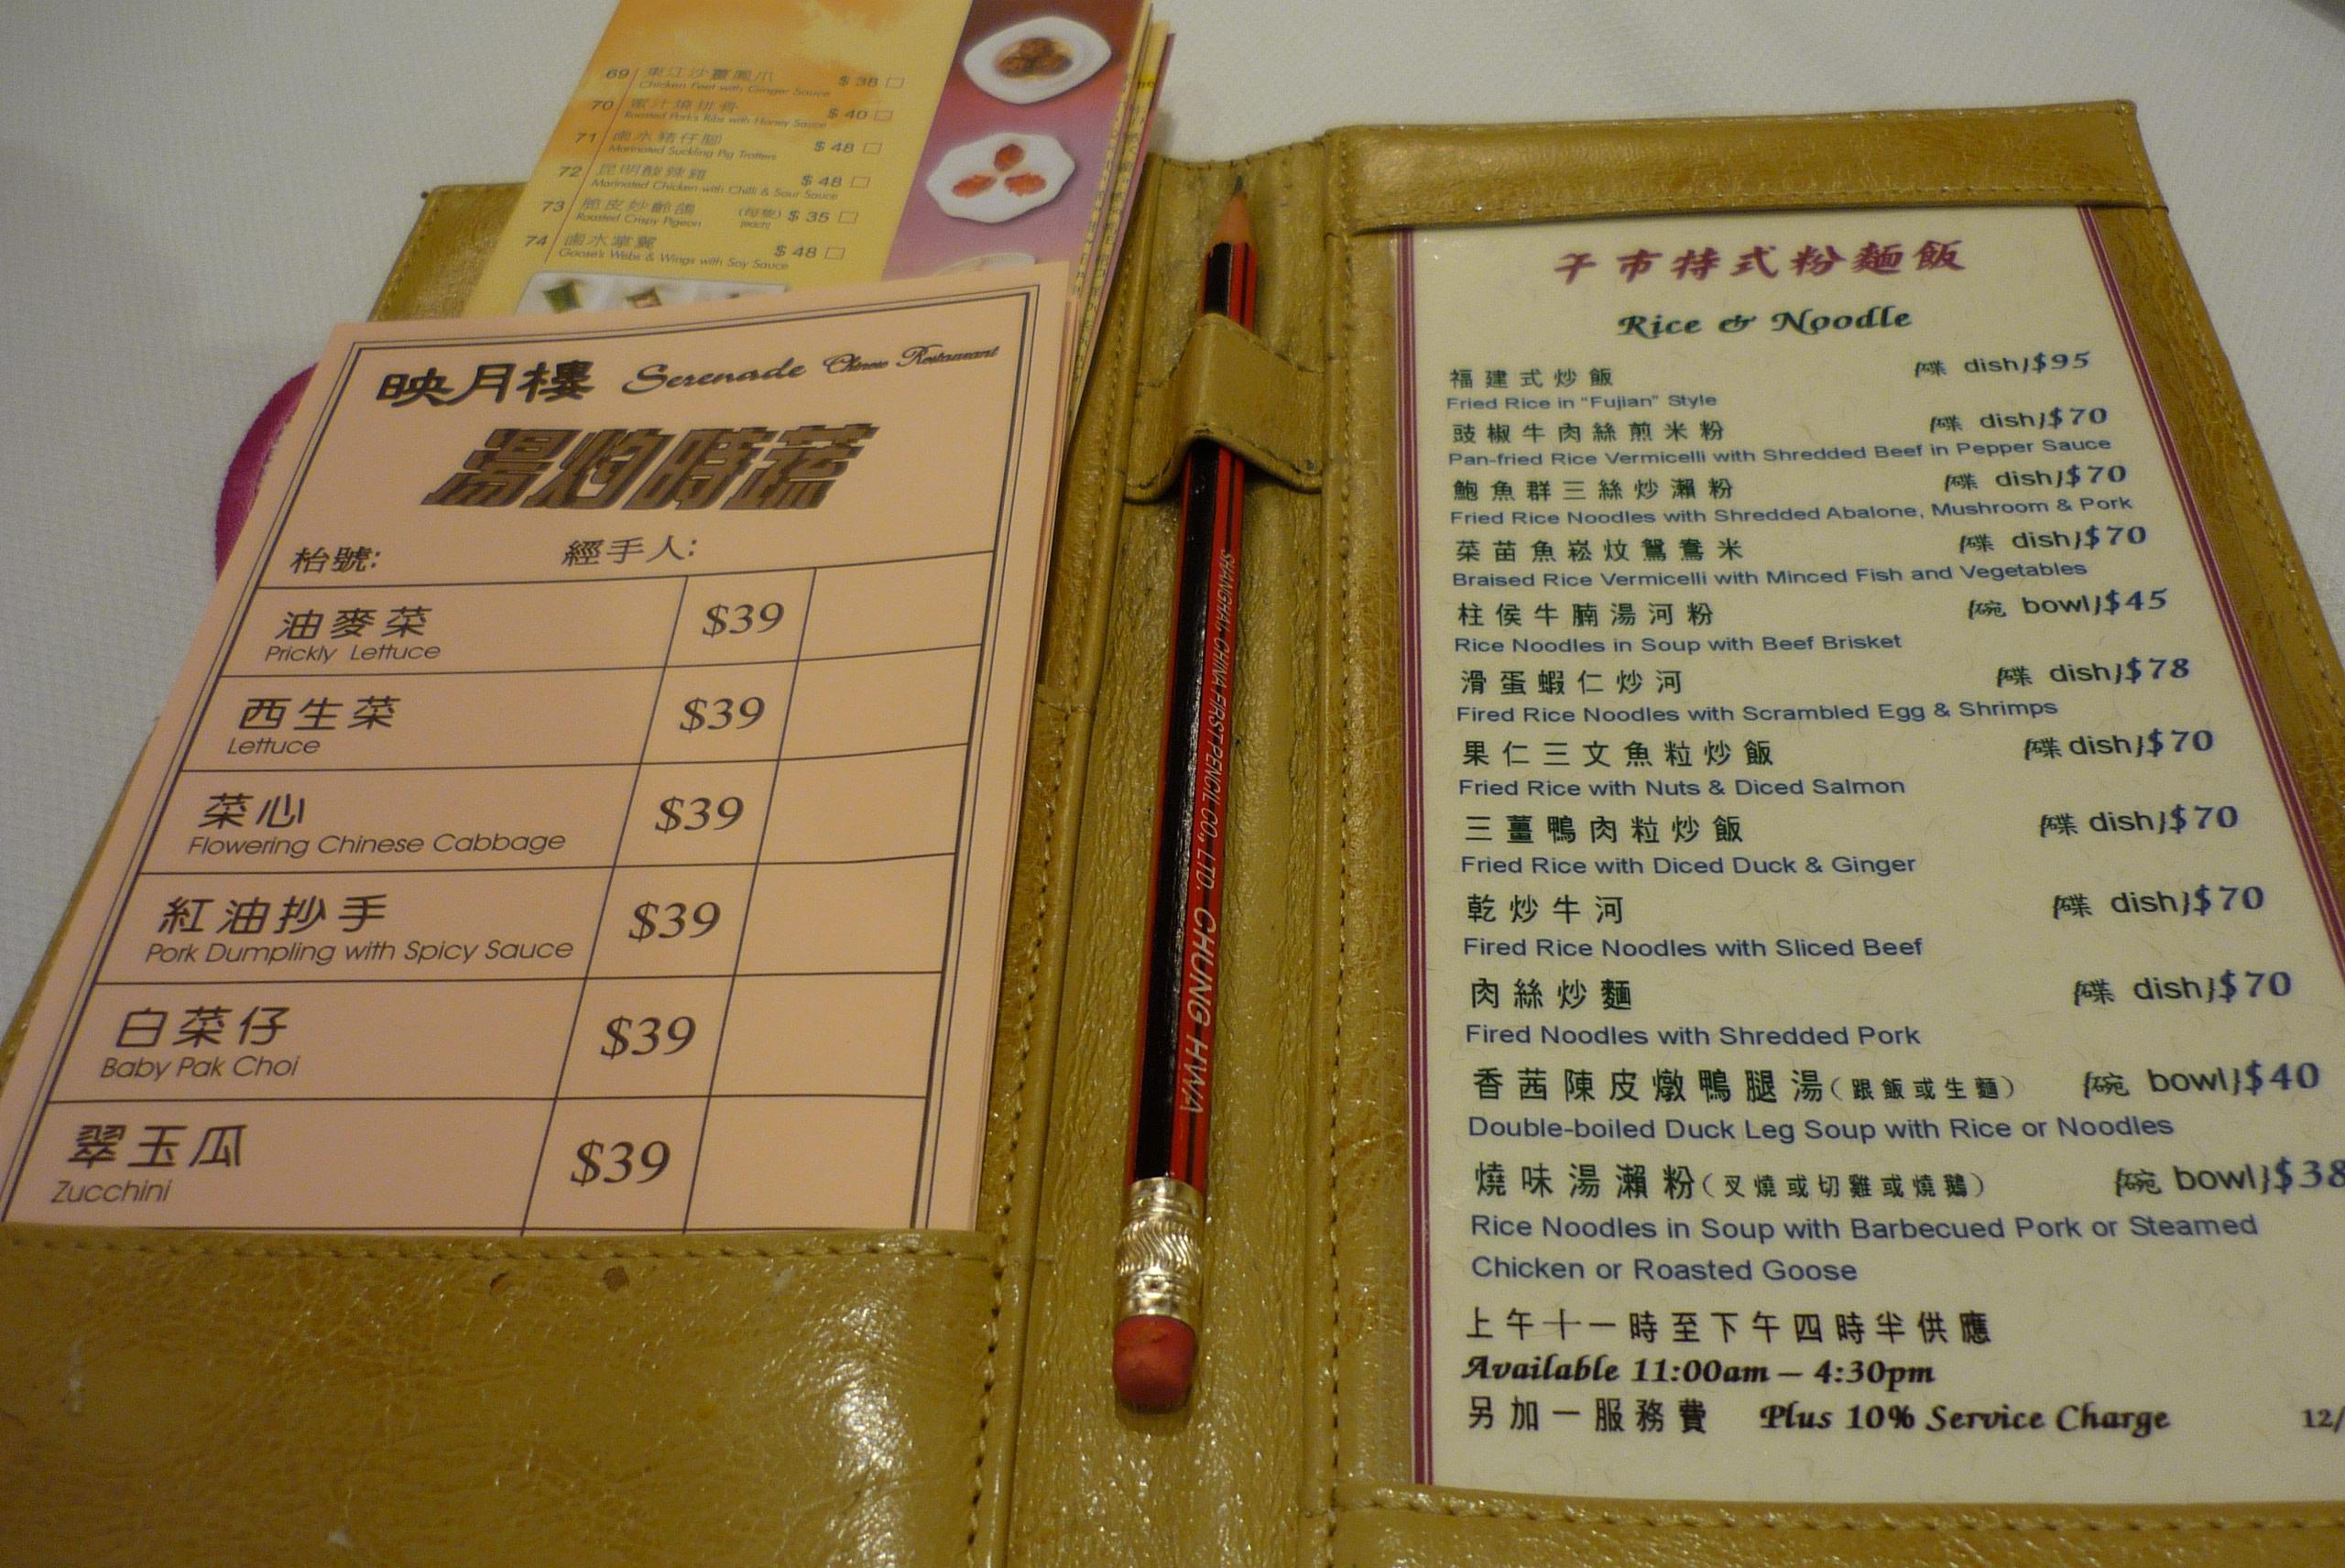 69 東江沙薑鳳爪 $ 38
Chicken Feet with Ginger Sauce
70 蜜汁燒排骨 $ 40
Roasted Pork's Ribs with Honey Sauce
71 鹵水豬仔腳 $ 48
Marinated Suckling Pig Trotters
72 昆明酸辣雞 $ 48
Marinated Chicken with Chilli & Sour Sauce
73 脆皮妙齡鴿 (每隻) $ 35
Roasted Crispy Pigeon (each)
74 鹵水掌翼 $ 48
Goose's Webs & Wings with Soy Sauce
映月樓 Serenade Chinese Restaurant
湯灼時蔬
枱號: 經手人:
油麥菜 $39
Prickly Lettuce
西生菜 $39
Lettuce
菜心 $39
Flowering Chinese Cabbage
紅油抄手 $39
Pork Dumpling with Spicy Sauce
白菜仔 $39
Baby Pak Choi
翠玉瓜 $39
Zucchini
SHANGHAI CHINA FIRST PENCIL CO., LTD. CHUNG HWA
午市特式粉麵飯
Rice & Noodle
福建式炒飯 {碟 dish}$95
Fried Rice in "Fujian" Style
豉椒牛肉絲煎米粉 {碟 dish}$70
Pan-fried Rice Vermicelli with Shredded Beef in Pepper Sauce
鮑魚群三絲炒瀨粉 {碟 dish}$70
Fried Rice Noodles with Shredded Abalone, Mushroom & Pork
菜苗魚崧炆鴛鴦米 {碟 dish}$70
Braised Rice Vermicelli with Minced Fish and Vegetables
柱侯牛腩湯河粉 {碗 bowl}$45
Rice Noodles in Soup with Beef Brisket
滑蛋蝦仁炒河 {碟 dish}$78
Fired Rice Noodles with Scrambled Egg & Shrimps
果仁三文魚粒炒飯 {碟 dish}$70
Fried Rice with Nuts & Diced Salmon
三薑鴨肉粒炒飯 {碟 dish}$70
Fried Rice with Diced Duck & Ginger
乾炒牛河 {碟 dish}$70
Fired Rice Noodles with Sliced Beef
肉絲炒麵 {碟 dish}$70
Fired Noodles with Shredded Pork
香茜陳皮燉鴨腿湯(跟飯或生麵) {碗 bowl}$40
Double-boiled Duck Leg Soup with Rice or Noodles
燒味湯瀨粉(叉燒或切雞或燒鵝) {碗 bowl}$38
Rice Noodles in Soup with Barbecued Pork or Steamed
Chicken or Roasted Goose
上午十一時至下午四時半供應
Available 11:00am – 4:30pm
另加一服務費 Plus 10% Service Charge 12/